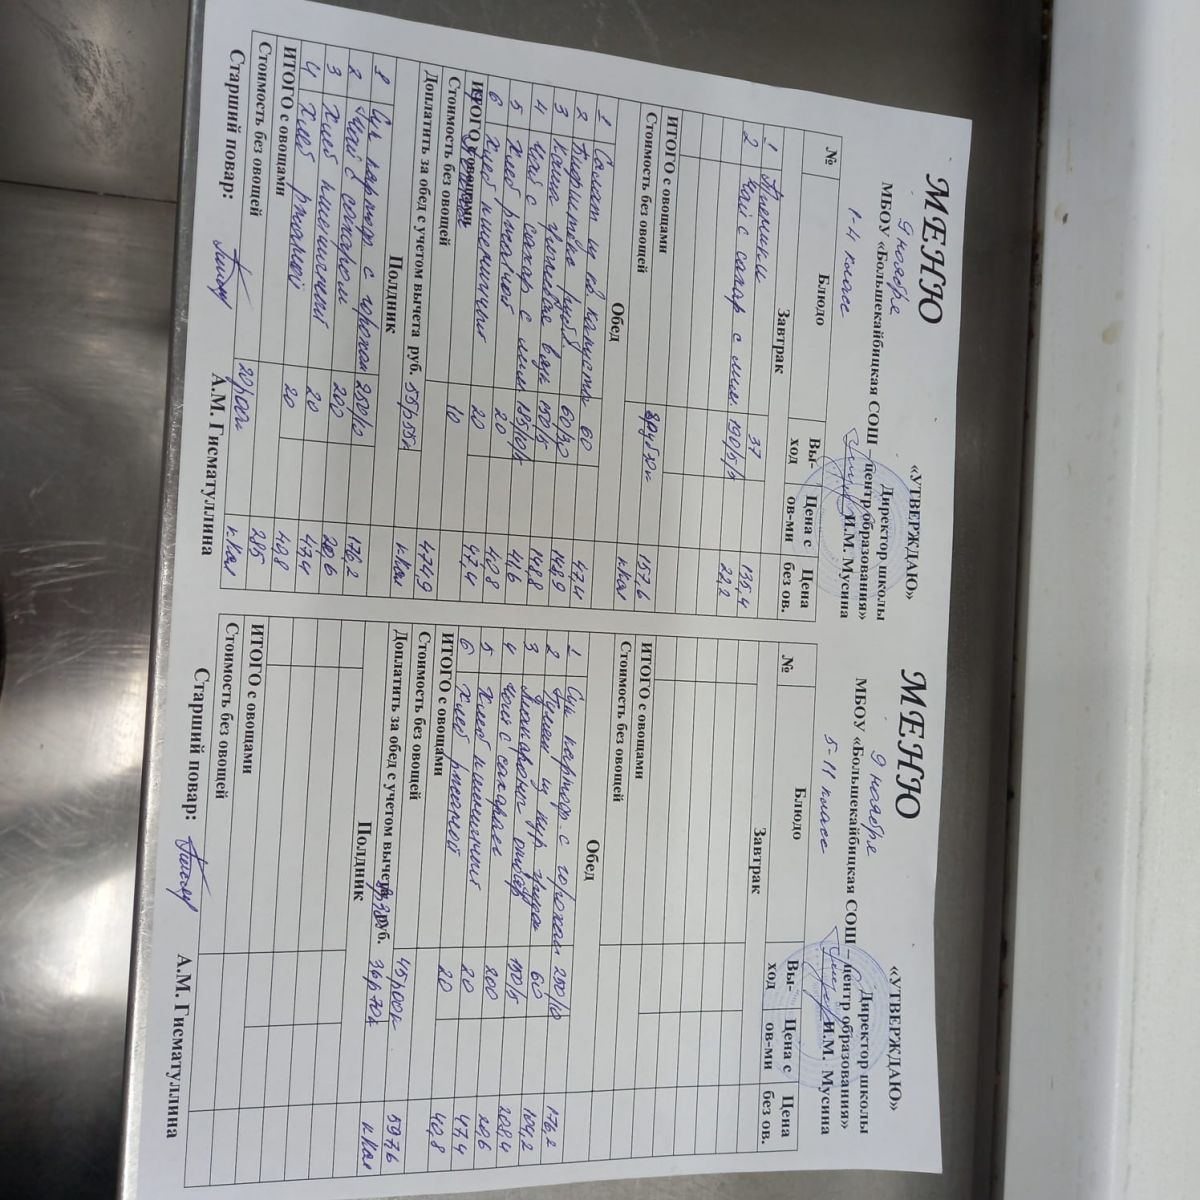 «УТВЕРЖДАЮ»
Директор школы
МБОУ «Большекайбицкая СОШ – центр образования»
И.М. Мусина
МЕНЮ
9 ноября
1-4 класс
№ Блюдо Вы-ход Цена с ов-ми Цена без ов.
Завтрак
1 37 135,4
2 Чай с сахар с лим. 190/5/5 22,2
ИТОГО с овощами 157,6
Стоимость без овощей ккал
Обед
1 Салат из капусты 60 47,4
2 60/30
3 Каша гречневая вязк 150/5
4 Чай с сахар с лим 41,6
5 Хлеб ржаной 20 40,8
6 Хлеб пшеничный 20 47,4
ИТОГО с овощами 10
Стоимость без овощей 474,9
Доплатить за обед с учетом вычета руб. ккал
Полдник
1 Суп картоф с горохом 250/10 176,2
2 Чай с сахаром 200 20,6
3 Хлеб пшеничный 20 47,4
4 Хлеб ржаной 20 40,8
ИТОГО с овощами 285
Стоимость без овощей ккал
Старший повар: А.М. Гисматуллина
«УТВЕРЖДАЮ»
Директор школы
МБОУ «Большекайбицкая СОШ – центр образования»
И.М. Мусина
МЕНЮ
9 ноября
5-11 класс
№ Блюдо Вы-ход Цена с ов-ми Цена без ов.
Завтрак
ИТОГО с овощами
Стоимость без овощей
Обед
1 Суп картоф. с горохом 250/10 176,2
2 60 104,2
3 Макароны отвар 150/5 208,4
4 Чай с сахаром 200 20,6
5 Хлеб пшеничный 20 47,4
6 Хлеб ржаной 20 40,8
ИТОГО с овощами
Стоимость без овощей 45р00к 597,6
Доплатить за обед с учетом вычета руб. 36р70к ккал
Полдник
ИТОГО с овощами
Стоимость без овощей
Старший повар: А.М. Гисматуллина